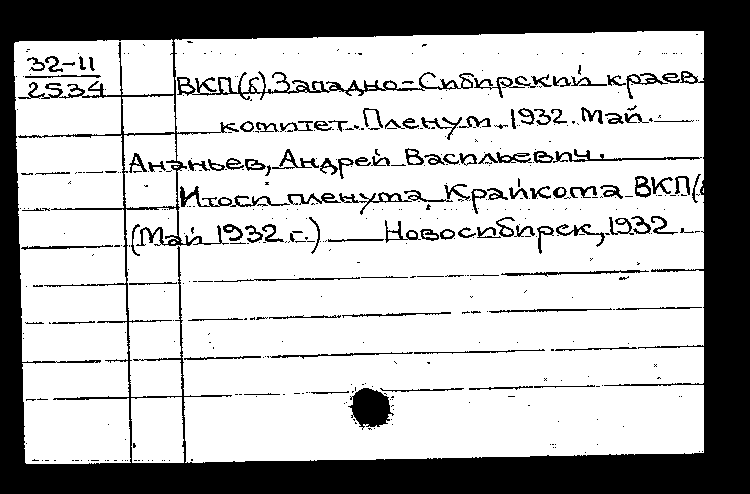 32-11
2534
ВКП(б). Западно-Сибирский краев.
комитет. Пленум. 1932. Май.
Ананьев, Андрей Васильевич.
Итоги пленума Крайкома ВКП(б
(Май 1932 г.) Новосибирск, 1932.